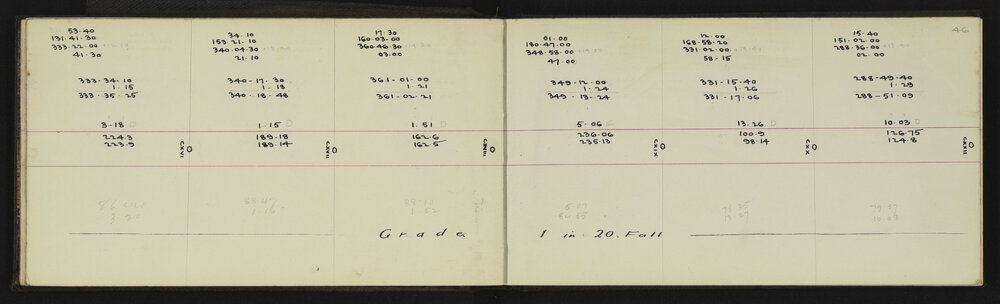 46
53.40
131.41.30
333.22.00
41.30
333-34.10
1.15
333.35-25
3-18 D
224.3
223.9
CXVI
34.10
153-21.10
340.04.30
21.10
340-17.30
1.18
340.18-48
1.15 D
189.18
189.14
CXVII
17.30
160.03.00
360.46.30
03.00
361-01-00
1.21
361-02-21
1.51 D
162.6
162.5
CXVIII
01.00
180.47.00
348-58.00
47.00
349-12-00
1.24
349-13-24
5-06
236.06
235.13
CXIX
12.00
168-58-20
331.02.00
58-15
331-15.40
1-26
331-17.06
13.26 D
100.9
98.14
CXX
15.40
151-02.00
288.36.00
02.00
288-49-40
1.29
288-51-09
10.03 D
126.75
124.8
CXXI
Grade 1 in 20. Fall